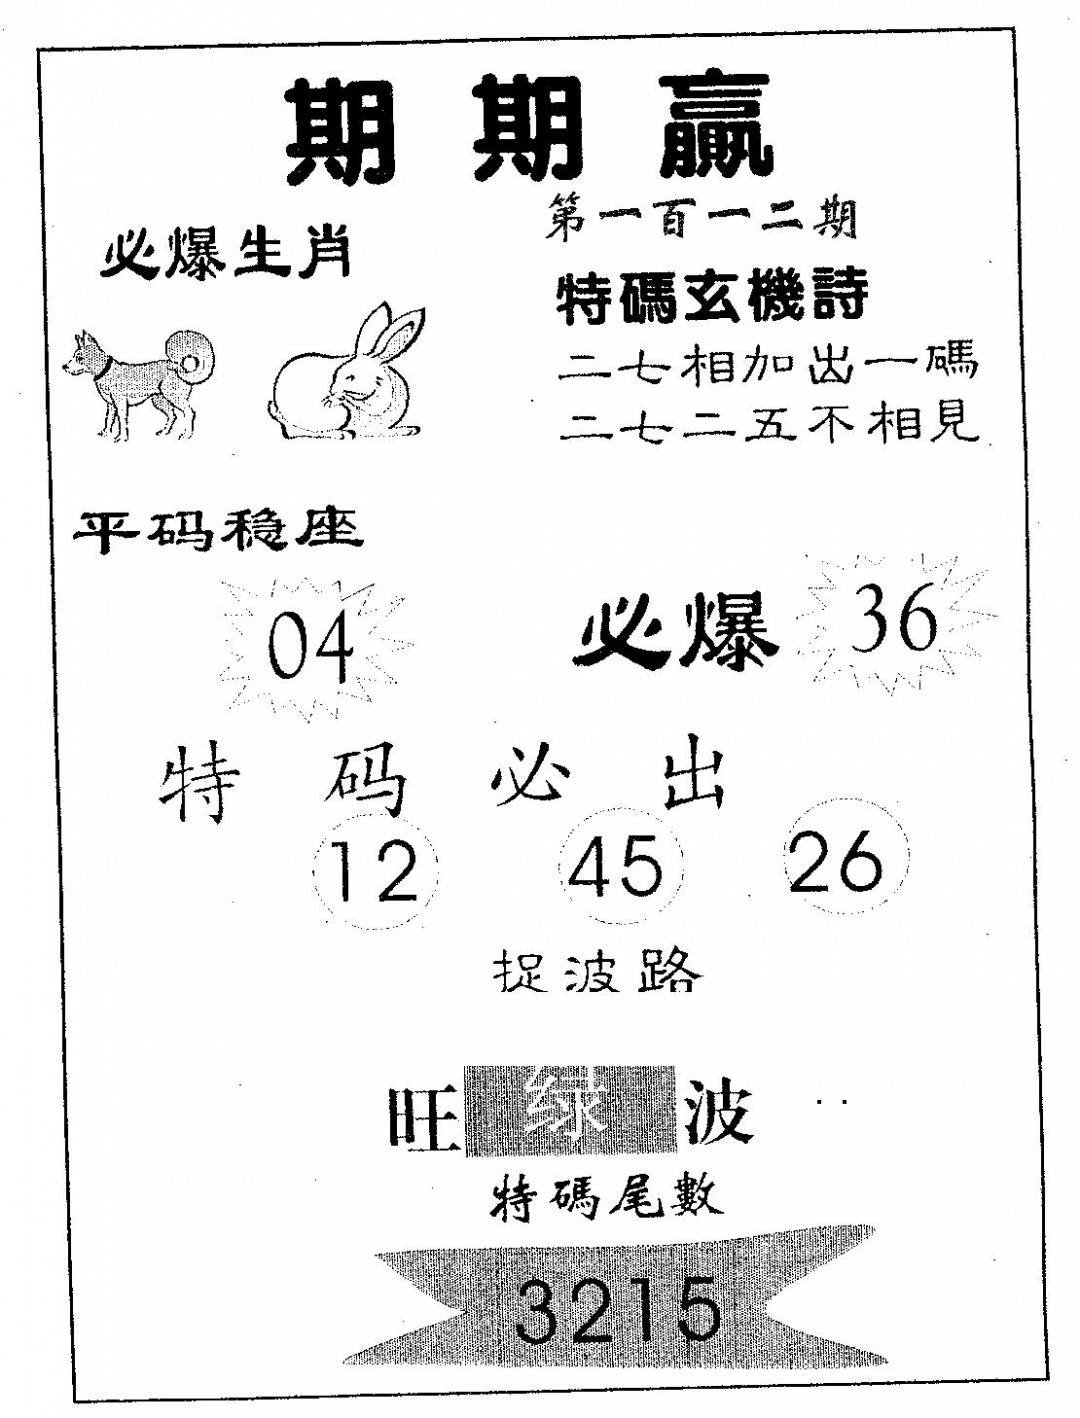 期期贏
第一百一二期
必爆生肖
特碼玄機詩
二七相加出一碼
二七二五不相見
平码稳座
04
必爆 36
特码必出
12 45 26
捉波路
旺绿波
特碼尾數
3215